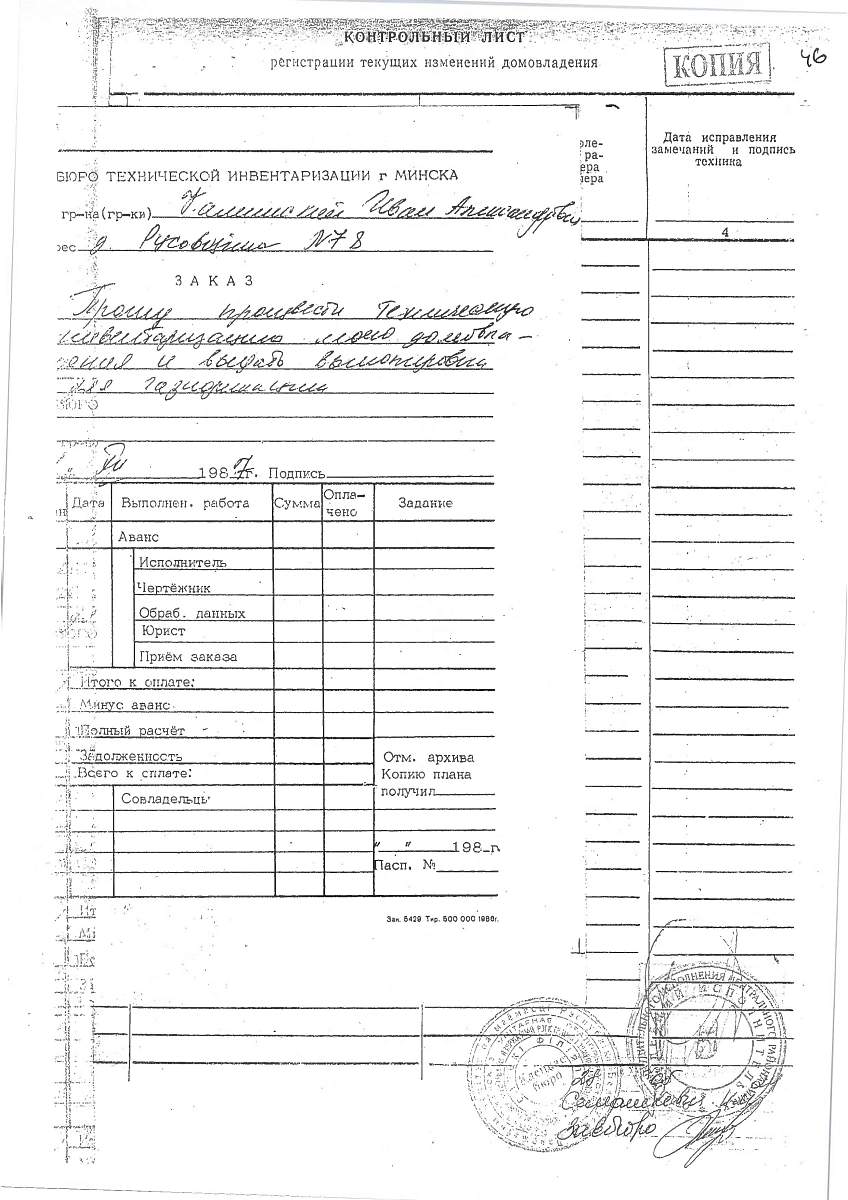 КОНТРОЛЬНЫЙ ЛИСТ
регистрации текущих изменений домовладения
КОПИЯ
46
Дата исправления
замечаний и подпись
техника
4
БЮРО ТЕХНИЧЕСКОЙ ИНВЕНТАРИЗАЦИИ г МИНСКА
гр-на(гр-ки) Иван Александрович
рес д. N78
ЗАКАЗ
Прошу произвести техническую
инвентаризацию моего домовла-
дения и выдать выкопировки
для газификации
БЮРО
VII 1987г. Подпись
Дата Выполнен. работа Сумма Опла-
чено Задание
Аванс
Исполнитель
Чертёжник
Обраб. данных
Юрист
Приём заказа
Итого к оплате:
Минус аванс
Полный расчёт
Задолженность
Всего к оплате:
Отм. архива
Копию плана
получил
Совладельцы
" " 198 г.
Пасп. №
Зак. 5429 Тир. 500 000 1986г.
Завбюро